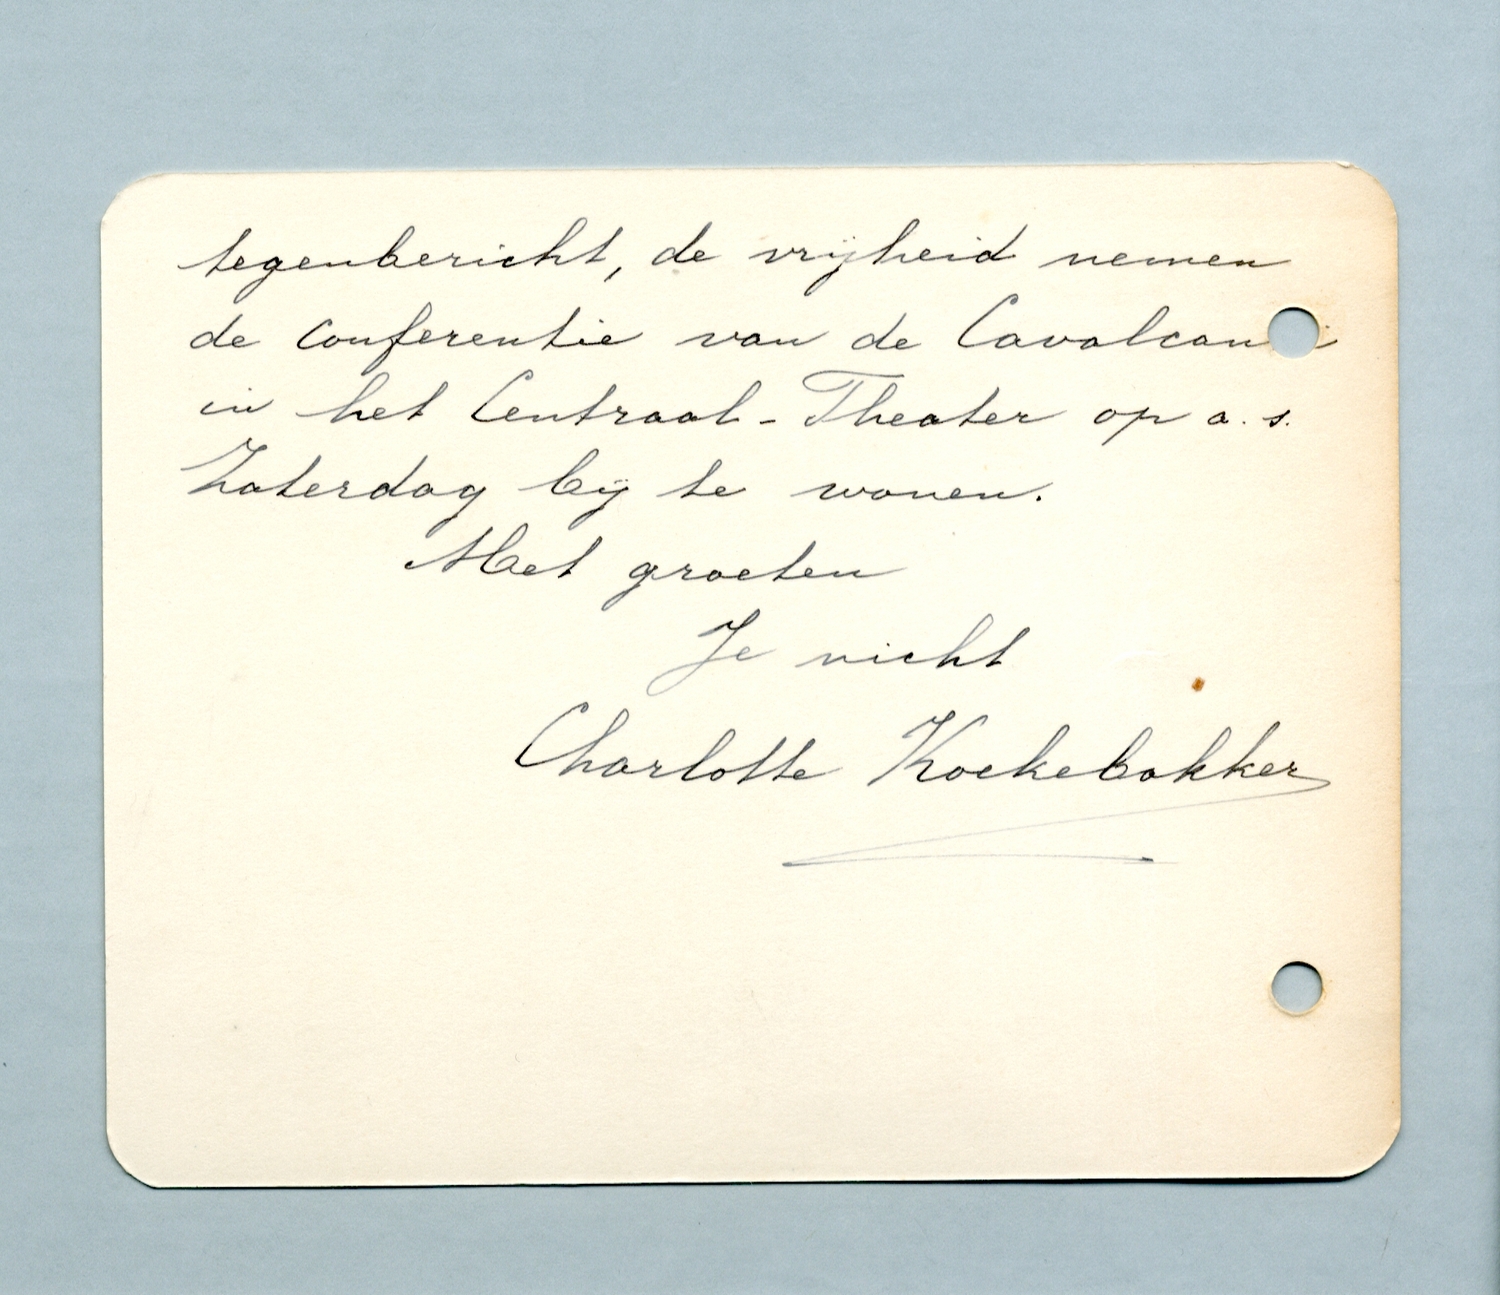 tegenbericht, de vrijheid nemen
de conferentie van de Cavalcanti
in het Centraal-Theater op a.s.
Zaterdag bij te wonen.
Met groeten
Je nicht
Charlotte Koekebakker